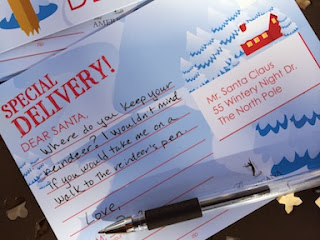 AMERI
SPECIAL
DELIVERY!
DEAR SANTA,
Where do you keep your
reindeer? I wouldn't mind
if you would take me on a
walk to the reindeer's pen.
Love,
Mr. Santa Claus
55 Wintery Night Dr.
The North Pole